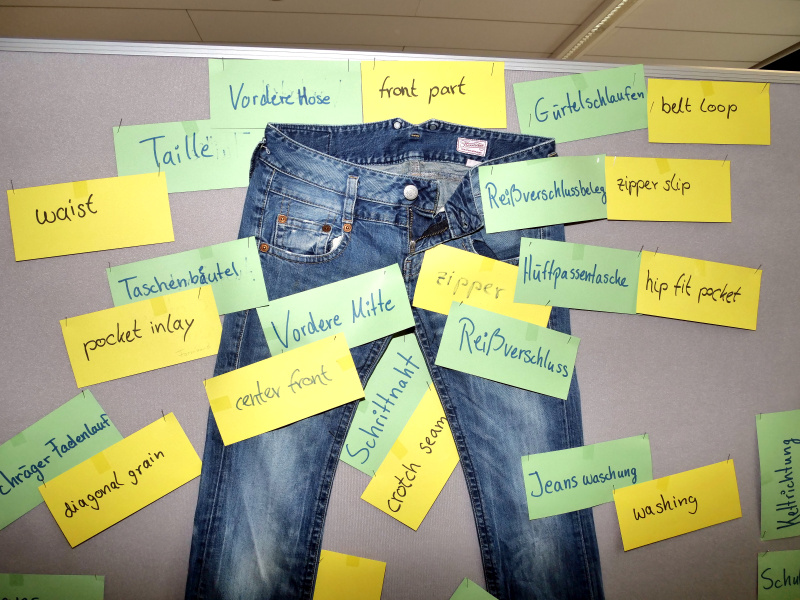 Vordere Hose
front part
Gürtelschlaufen
belt loop
Taille
waist
Reißverschlussbeleg
zipper slip
Taschenbeutel
pocket inlay
Vordere Mitte
center front
zipper
Reißverschluss
Hüftpassentasche
hip fit pocket
Schrittnaht
crotch seam
chräger Fadenlauf
diagonal grain
Jeanswaschung
washing
Kettrichtung
Schu